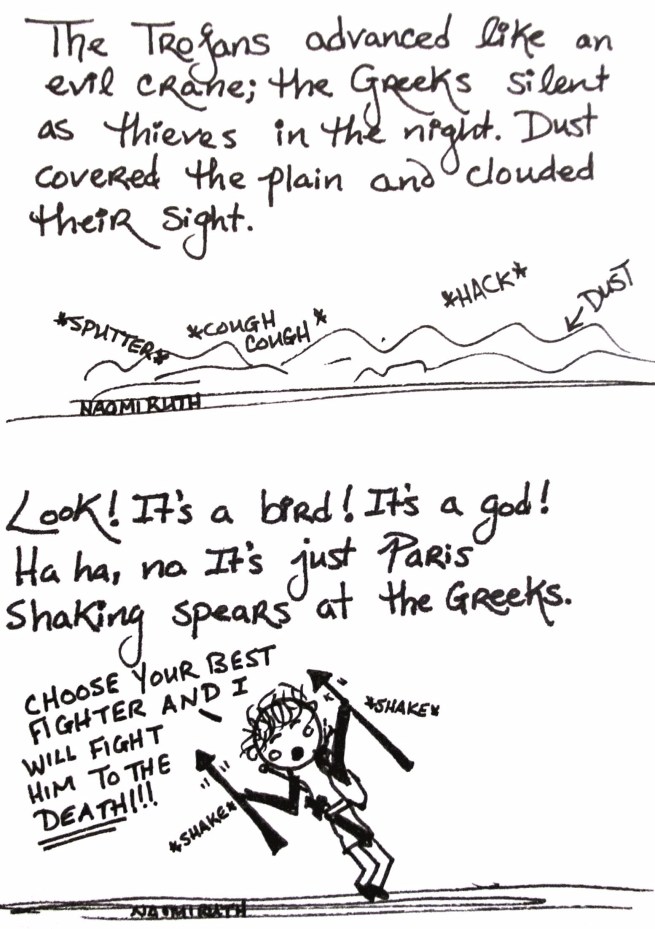 The Trojans advanced like an
evil crane; the Greeks silent
as thieves in the night. Dust
covered the plain and clouded
their sight.
*SPUTTER*
*COUGH
COUGH*
*HACK*
DUST
NAOMI RUTH
Look! It's a bird! It's a god!
Ha ha, no It's just Paris
Shaking spears at the Greeks.
CHOOSE YOUR BEST
FIGHTER AND I
WILL FIGHT
HIM TO THE
DEATH!!!
*SHAKE*
*SHAKE*
NAOMI RUTH